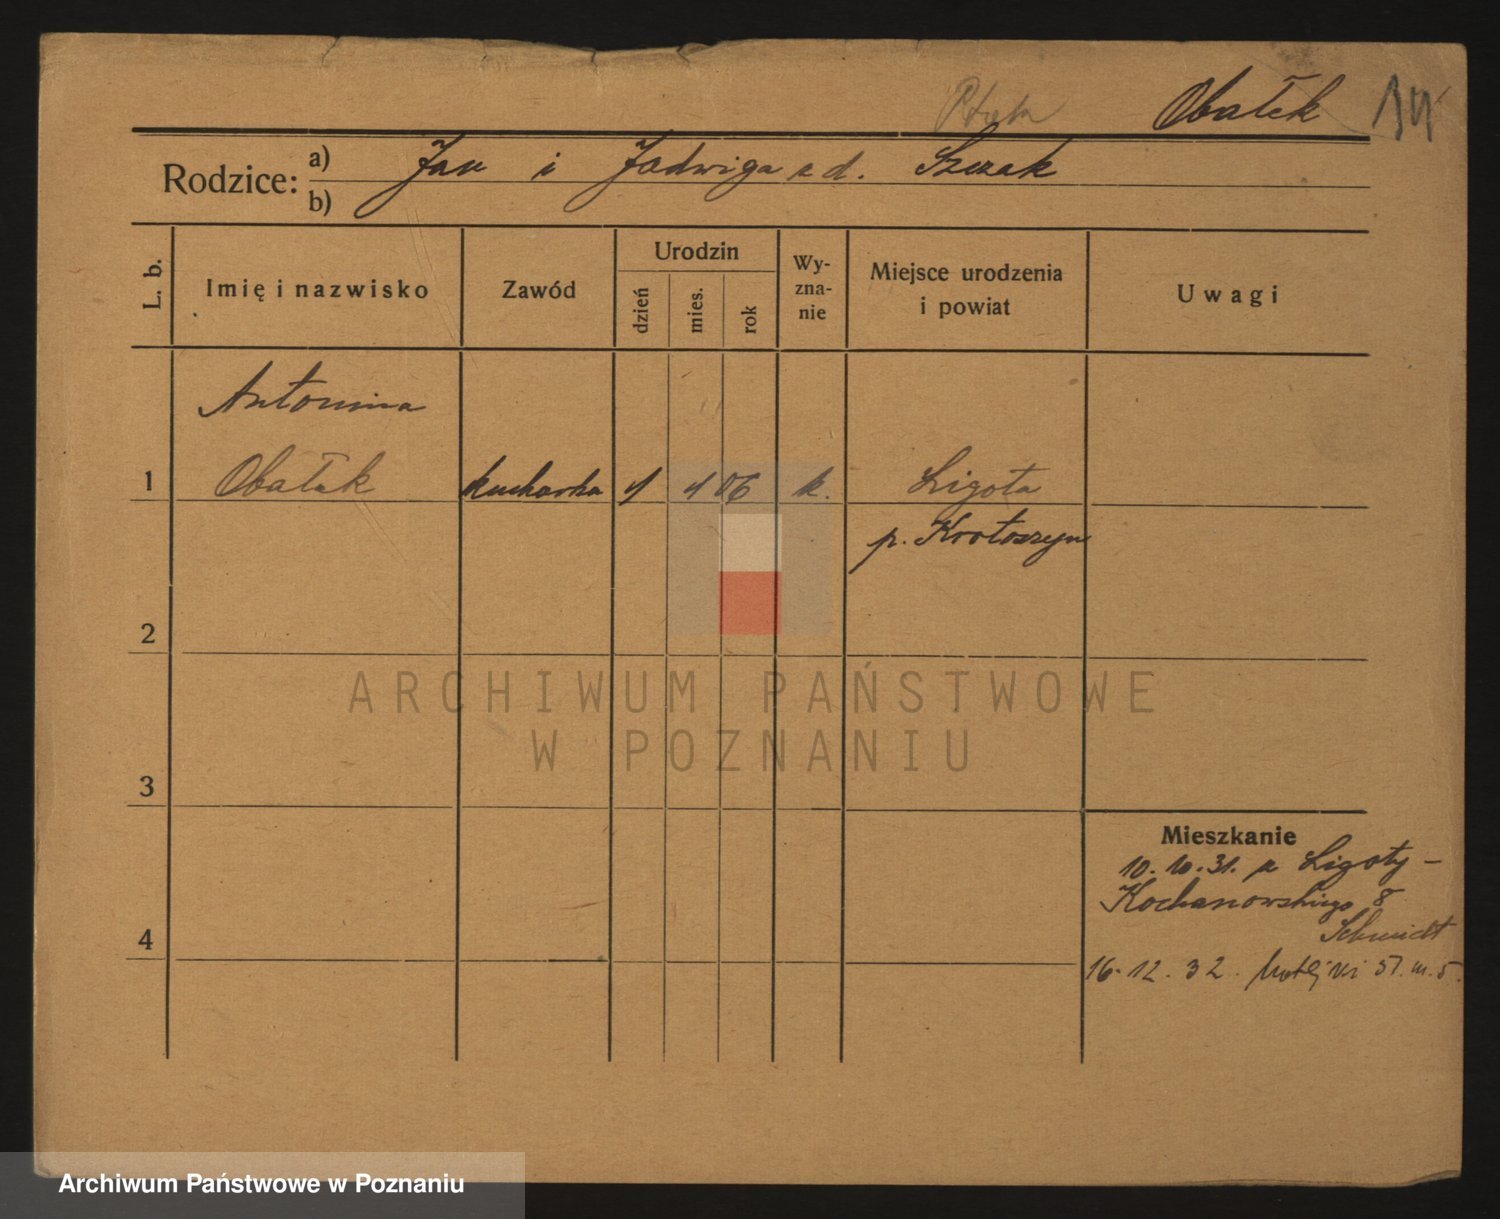 Obałek 14
Rodzice: a) Jan i Jadwiga z d. Szczak
b)
L. b.
Imię i nazwisko
Zawód
Urodzin
dzień
mies.
rok
Wy-
zna-
nie
Miejsce urodzenia
i powiat
Uwagi
Antonina
1 Obałek kucharka 1 4 06 k. Ligota
p. Krotoszyn
2
ARCHIWUM PAŃSTWOWE
W POZNANIU
3
Mieszkanie
10.10.31. z Ligoty –
Kochanowskiego 8
Schmidt
4
16.12.32. Matejki 57. m. 5.
Archiwum Państwowe w Poznaniu